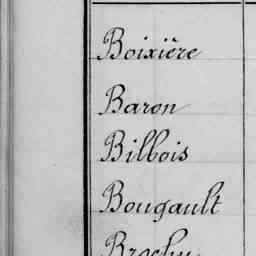 Boixière
Baron
Bilbois
Bougault